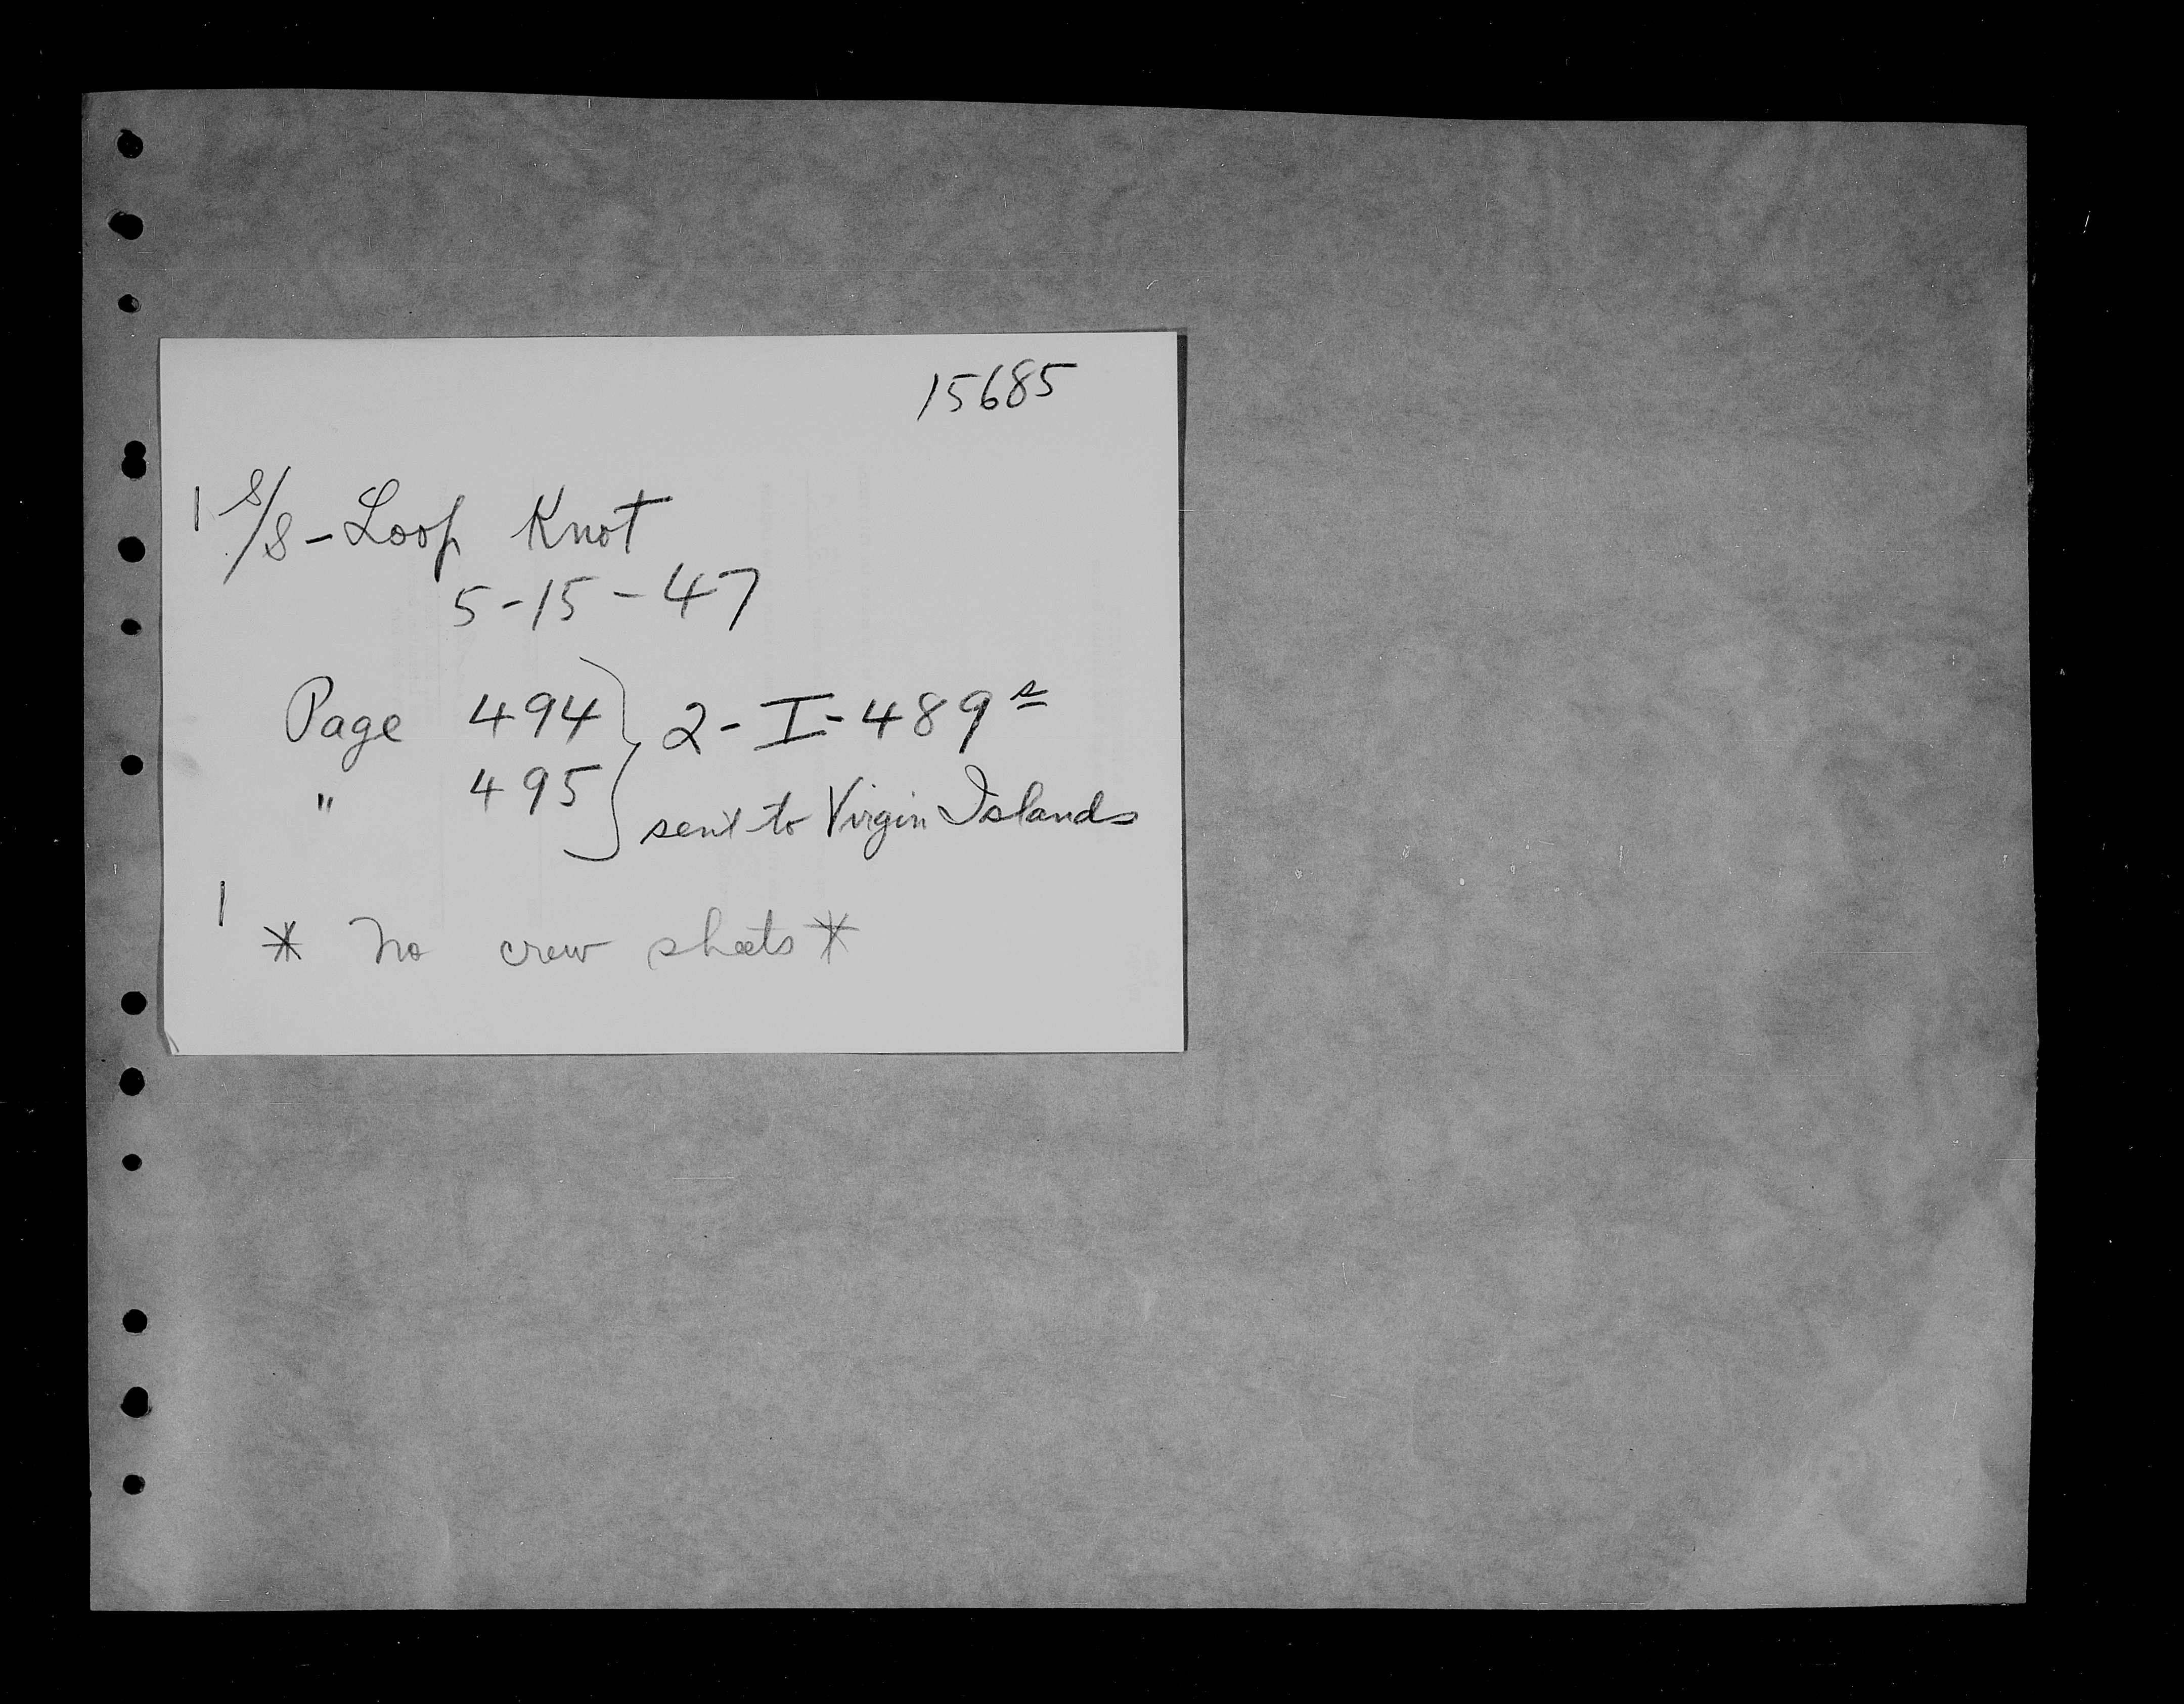 15685
1 S/S - Loop Knot
5-15-47
Page 494 } 2-I-489s
" 495 } sent to Virgin Islands
1
* No crew sheets *